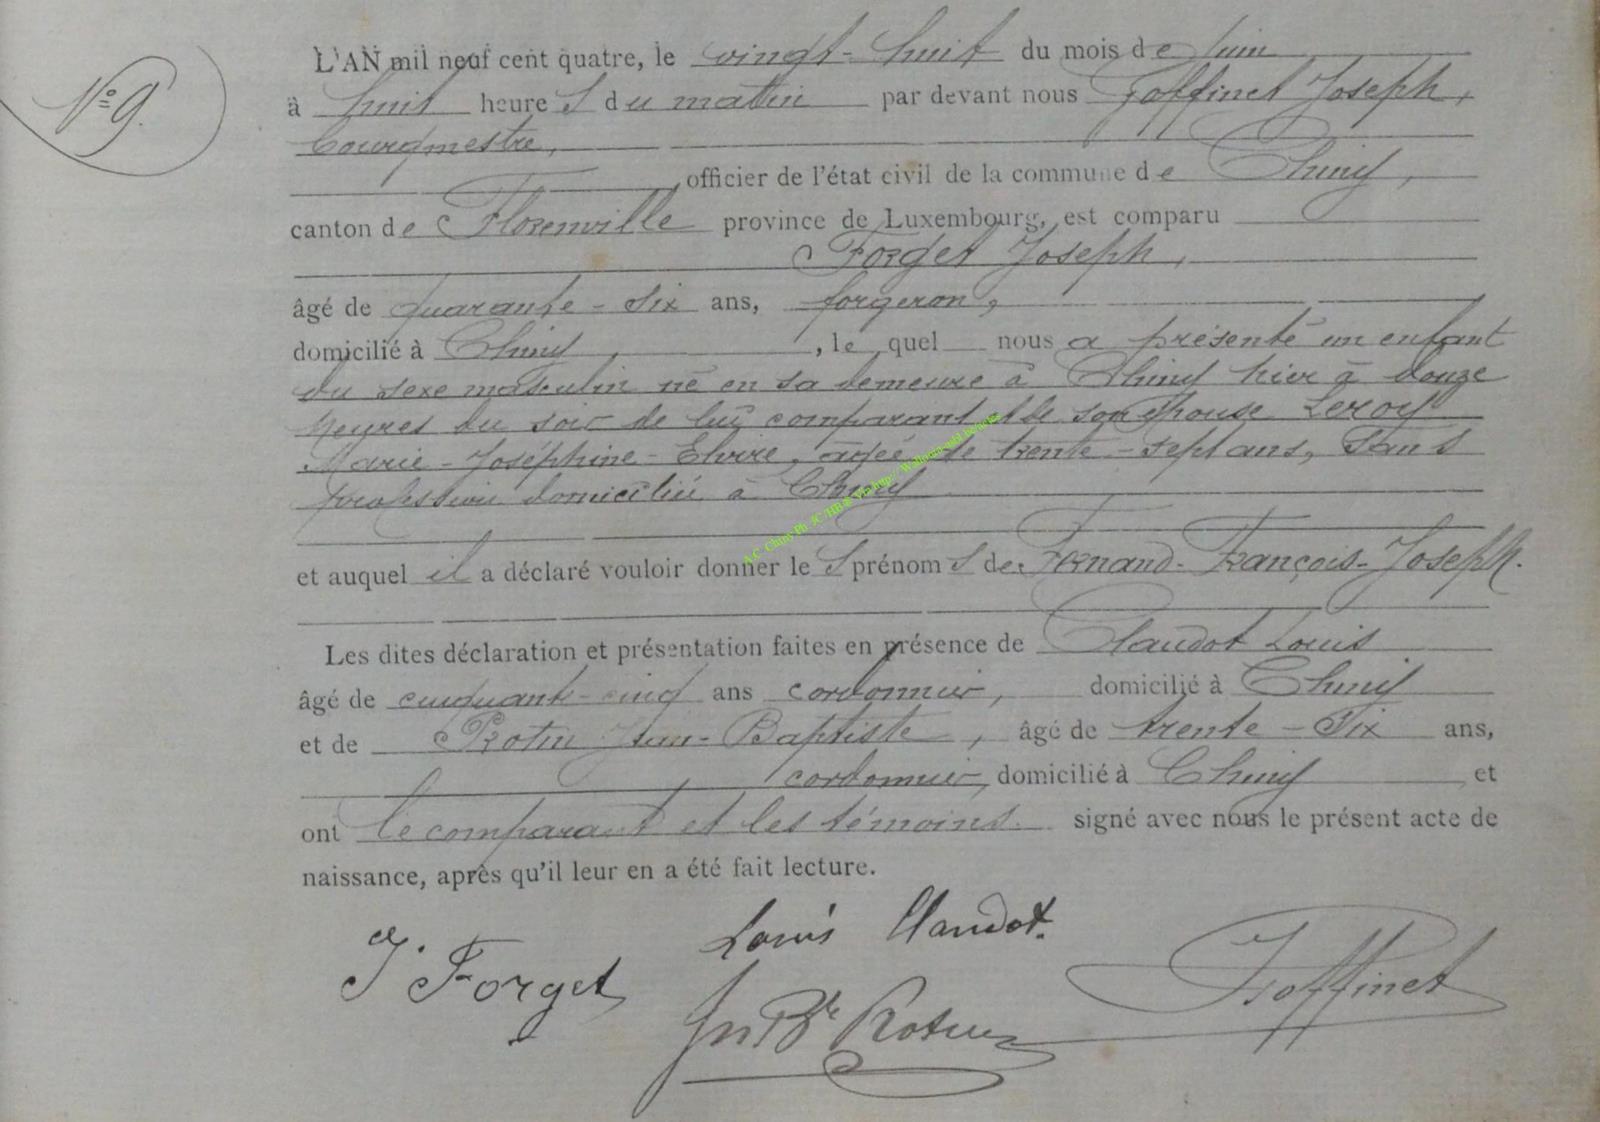 N° 9.
L'AN mil neuf cent quatre, le vingt-huit du mois de juin
à huit heure s du matin par devant nous Goffinet Joseph,
bourgmestre,
officier de l'état civil de la commune de Chiny,
canton de Florenville province de Luxembourg, est comparu
Forget Joseph,
âgé de quarante-six ans, forgeron,
domicilié à Chiny, le quel nous a présenté un enfant
du sexe masculin né en sa demeure à Chiny hier à douze
heures du soir de lui comparant et de son épouse Leroy
Marie-Joséphine-Elvire, agée de trente-sept ans, sans
profession domiciliée à Chiny
et auquel il a déclaré vouloir donner le s prénom s de Fernand-François-Joseph.
Les dites déclaration et présentation faites en présence de Claudot Louis
âgé de cinquante-cinq ans cordonnier, domicilié à Chiny
et de Rotin Jean-Baptiste, âgé de trente-six ans,
cordonnier, domicilié à Chiny et
ont le comparant et les témoins. signé avec nous le présent acte de
naissance, après qu'il leur en a été fait lecture.
J. Forget
Louis Claudot.
Jn Bte Rotin
Goffinet